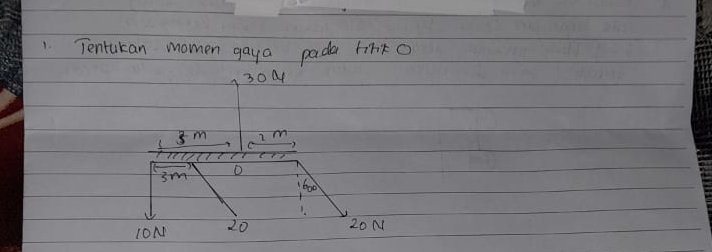 1. Tentukan momen gaya pada titik O
30 N
5 m 2 m
3m O 60°
10N 20 20 N